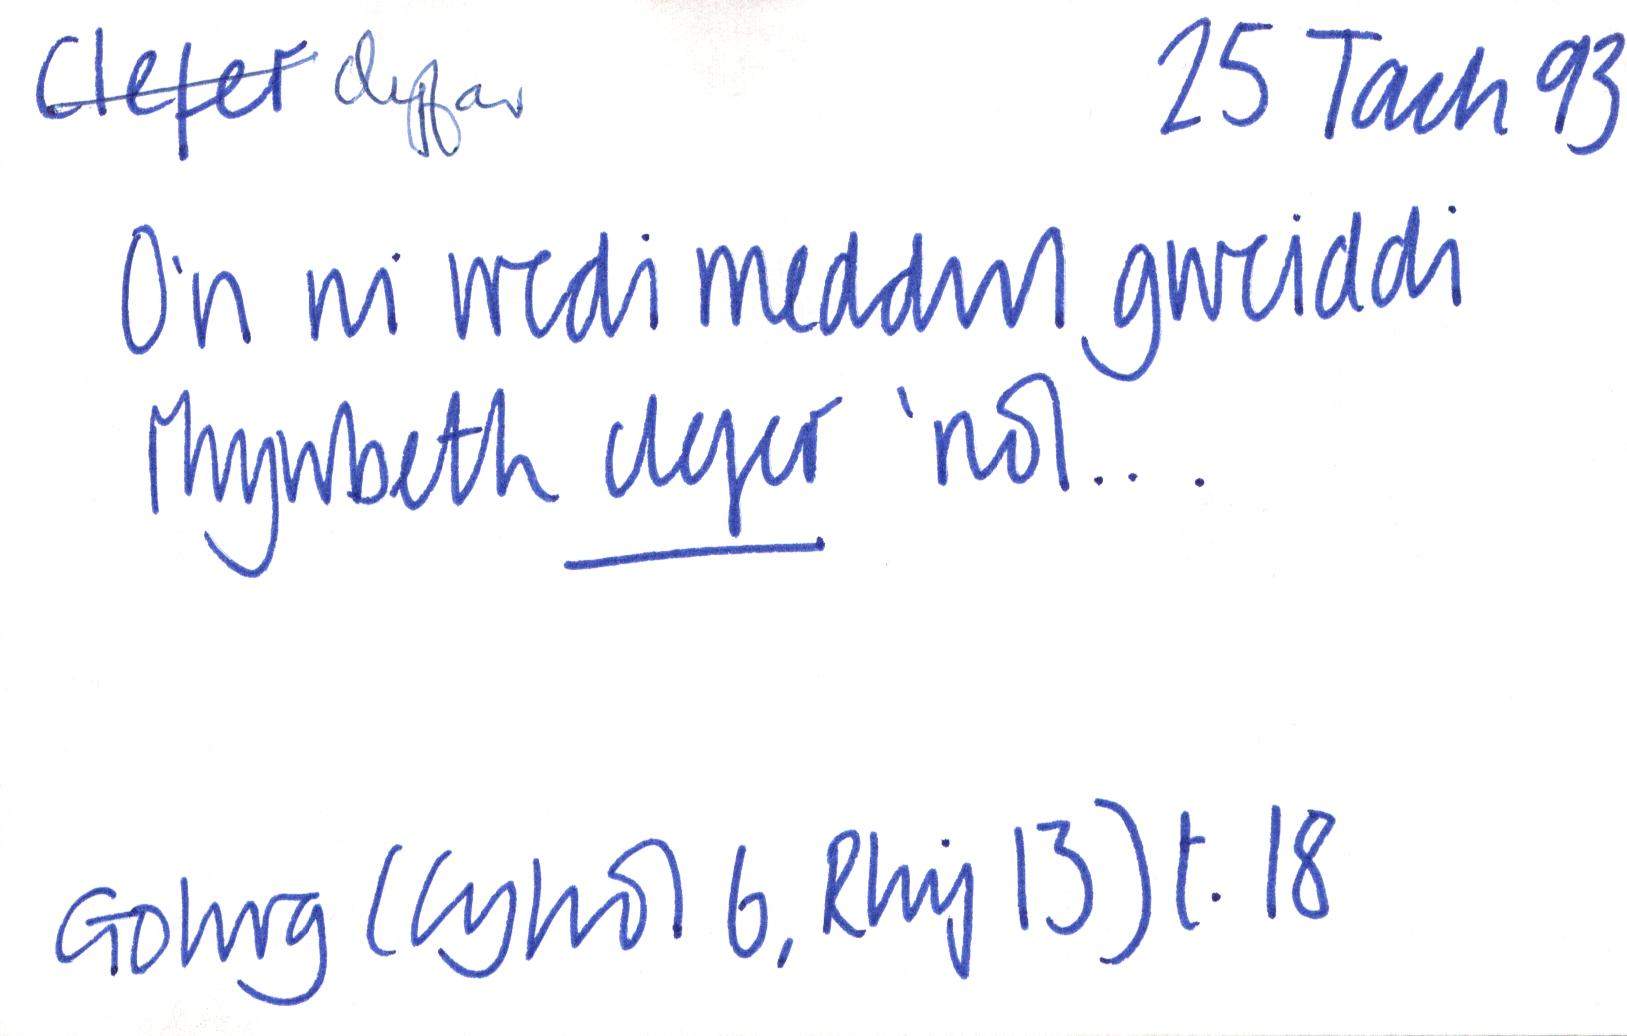 Clefer clyfar 25 Tach 93
O'n ni wedi meddwl gweiddi
rhywbeth clefer 'nôl...
Golwg (Cyfrol 6, Rhif 13) t. 18